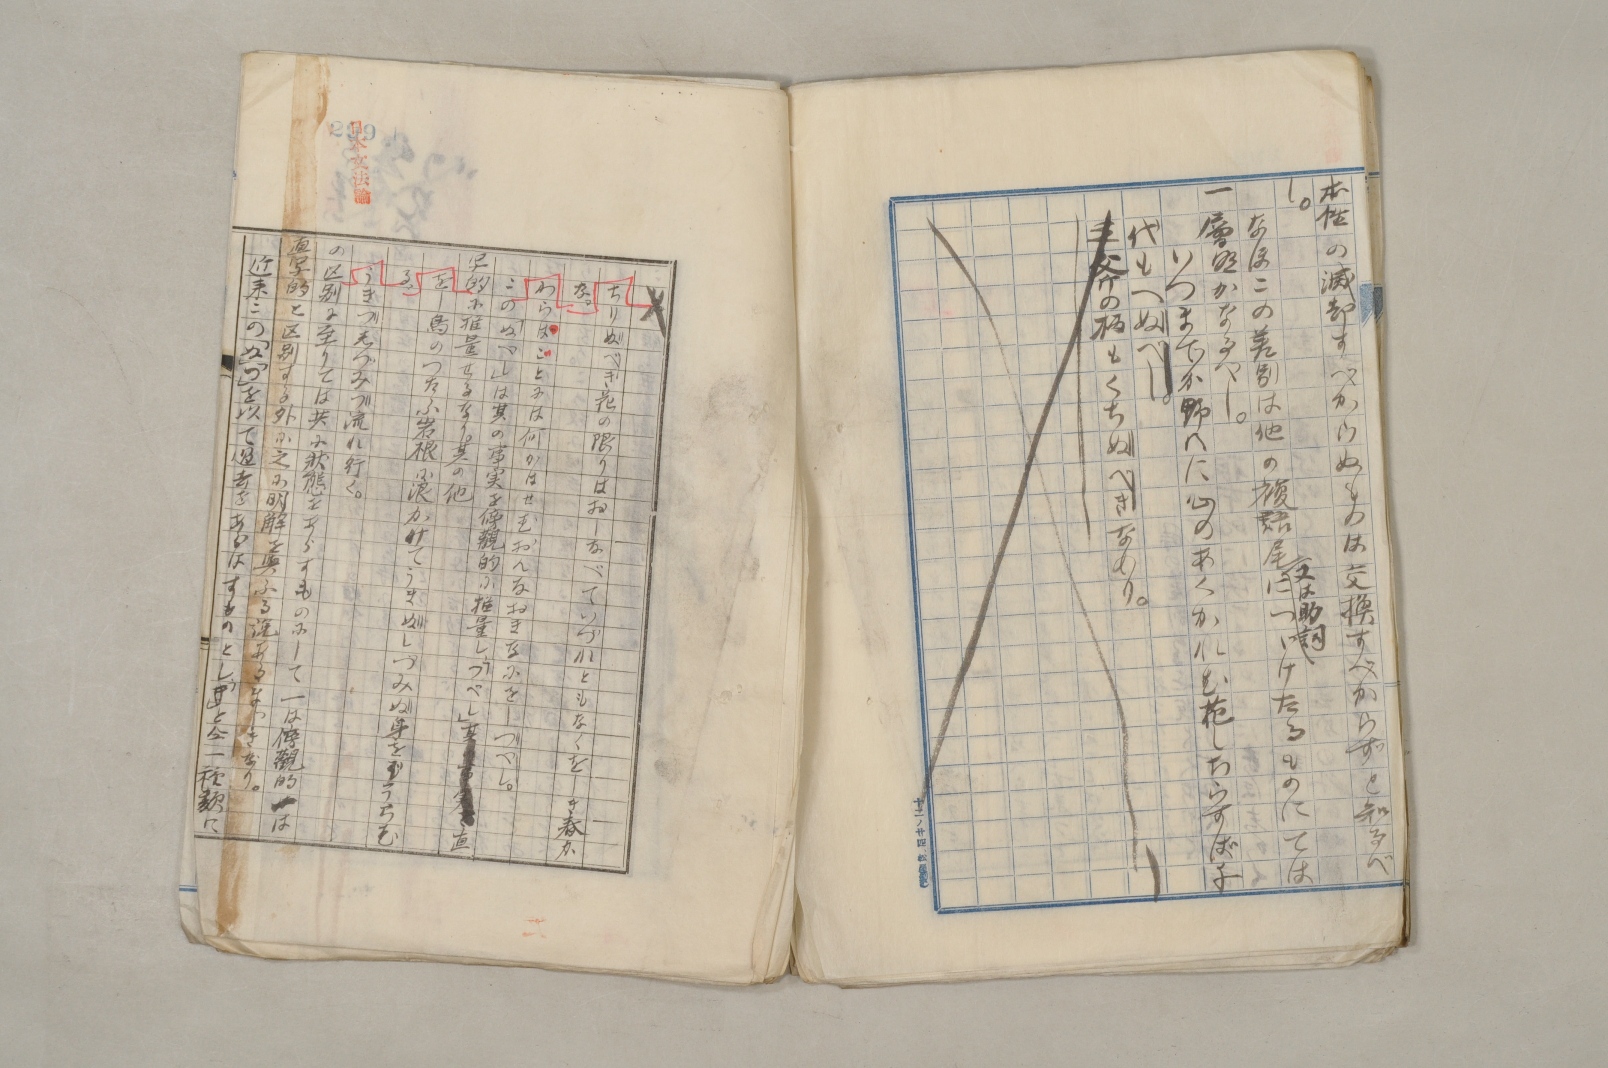 本性の滅却すべからぬものは交換すべからずと知るべ
し。
なほこの差別は他の複語尾
又は助詞
につゞけたるものにては
一層明かなるべし。
いつまでか野べに心のあくがれむ花しちらずば千
代もへぬべし。
斧の柄もくちぬべきなめり。
日本文法論
ちりぬべき花の限りはおしなべていづれともなくをしき春か
な。
わらはごとには何かはせむおんなおきなにをしつべし。
この「ぬべし」は其の事実を傍観的に推量し「つべし」
直
写的に推量せるなり其の他
を
し鳥のつたふ岩根に浪かけてうきぬしづみぬ身を
うちむ
る。
うきつしづみつ流れ行く。
の区別に至りては共に状態をあらすものにして一は傍観的一は
直写的と区別する外に之に明解を与ふる説あるまじきなり。
近来この「ぬ」「つ」を以て過去をあらはすものとし
種類に